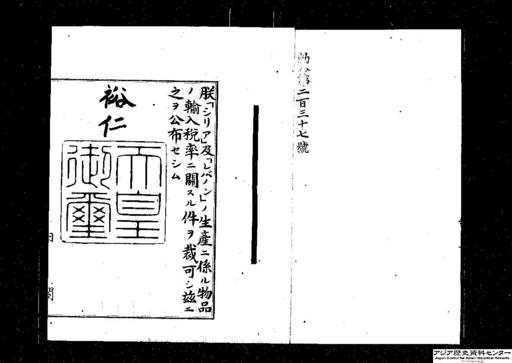 勅令第二百三十七號
朕「シリア」及「レバノン」ノ生産ニ係ル物品
ノ輸入税率ニ關スル件ヲ裁可シ茲ニ
之ヲ公布セシム
裕仁
天皇
御璽
内閣
アジア歴史資料センター
Japan Center for Asian Historical Records